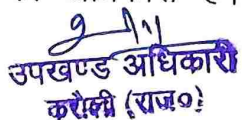 उपखण्ड अधिकारी
करौली (राज०)